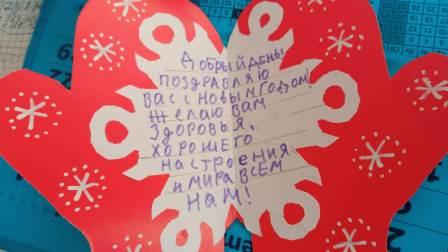 Добрый день!
поздравляю
вас с новым годом!
Желаю вам
здоровья,
хорошего
настроения
и мира всем
нам!